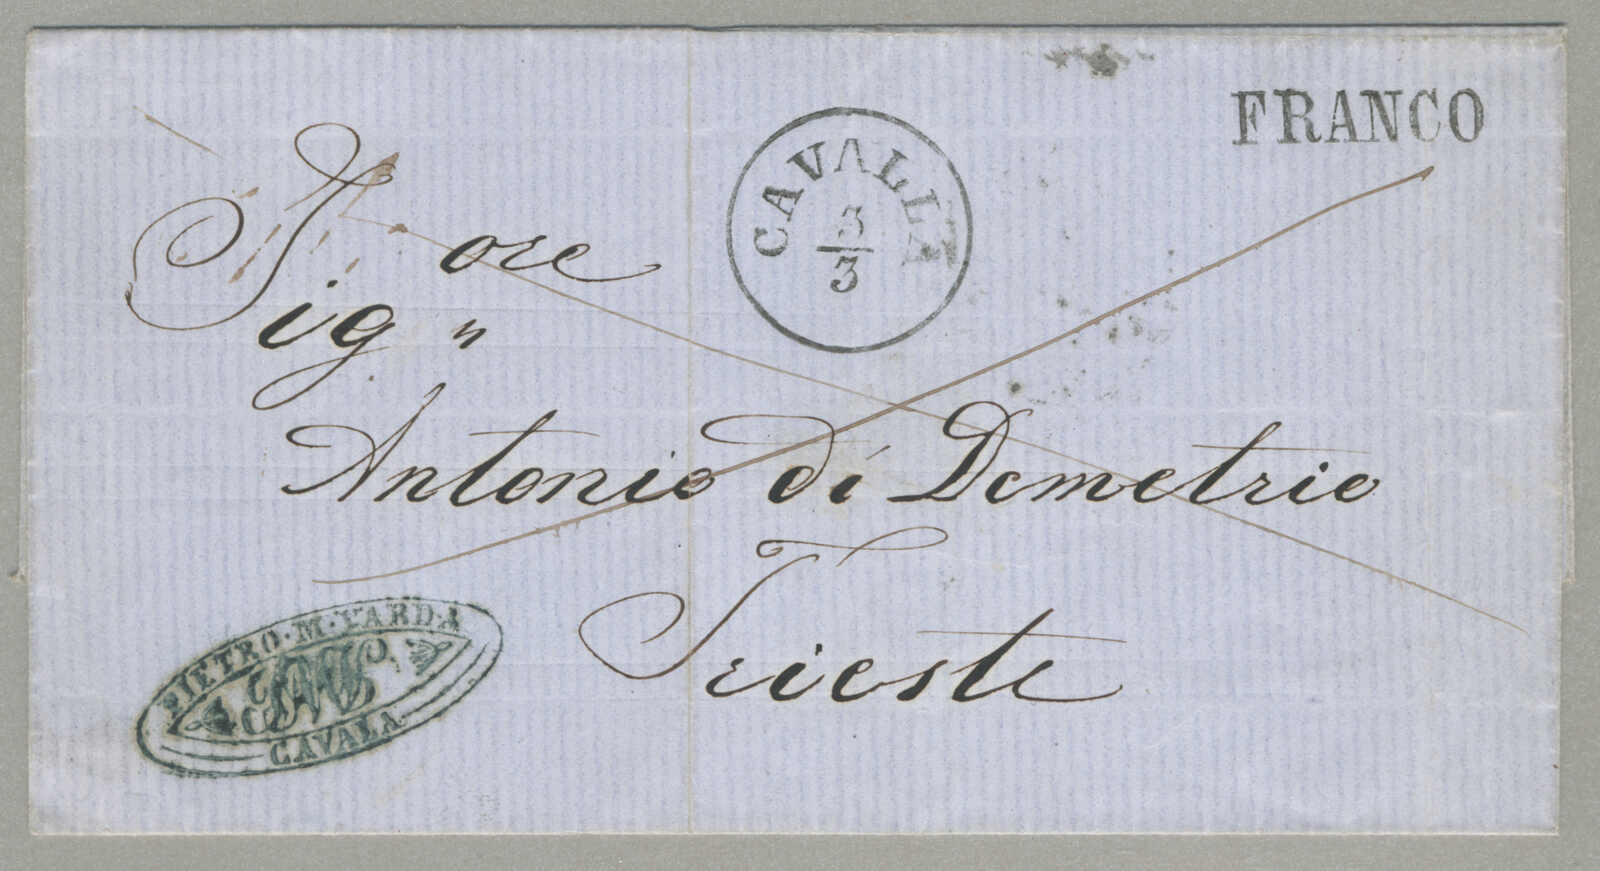 FRANCO
CAVALLA
3
3
Sig ore "
Antonio di Demetrio
Trieste
PIETRO·M·VARDA
CAVALA